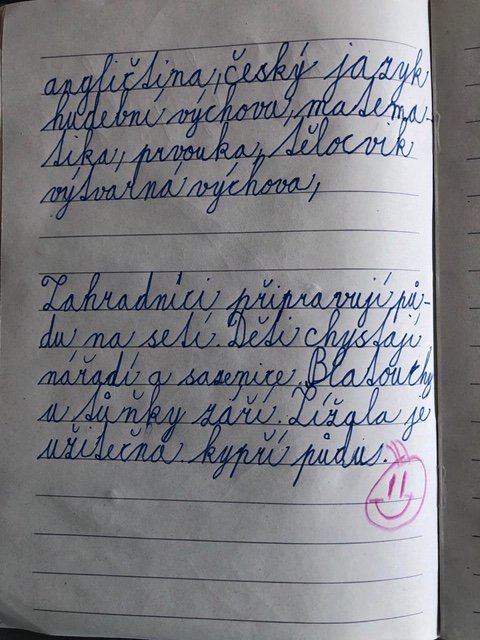 angličtina, český jazyk
hudební výchova, matema-
tika, prvouka, tělocvik
výtvarná výchova,
Zahradníci připravují pů-
du na setí. Děti chystají
nářadí a sazenice. Blatouchy
u tůňky září. Žížala je
užitečná kypří půdu.